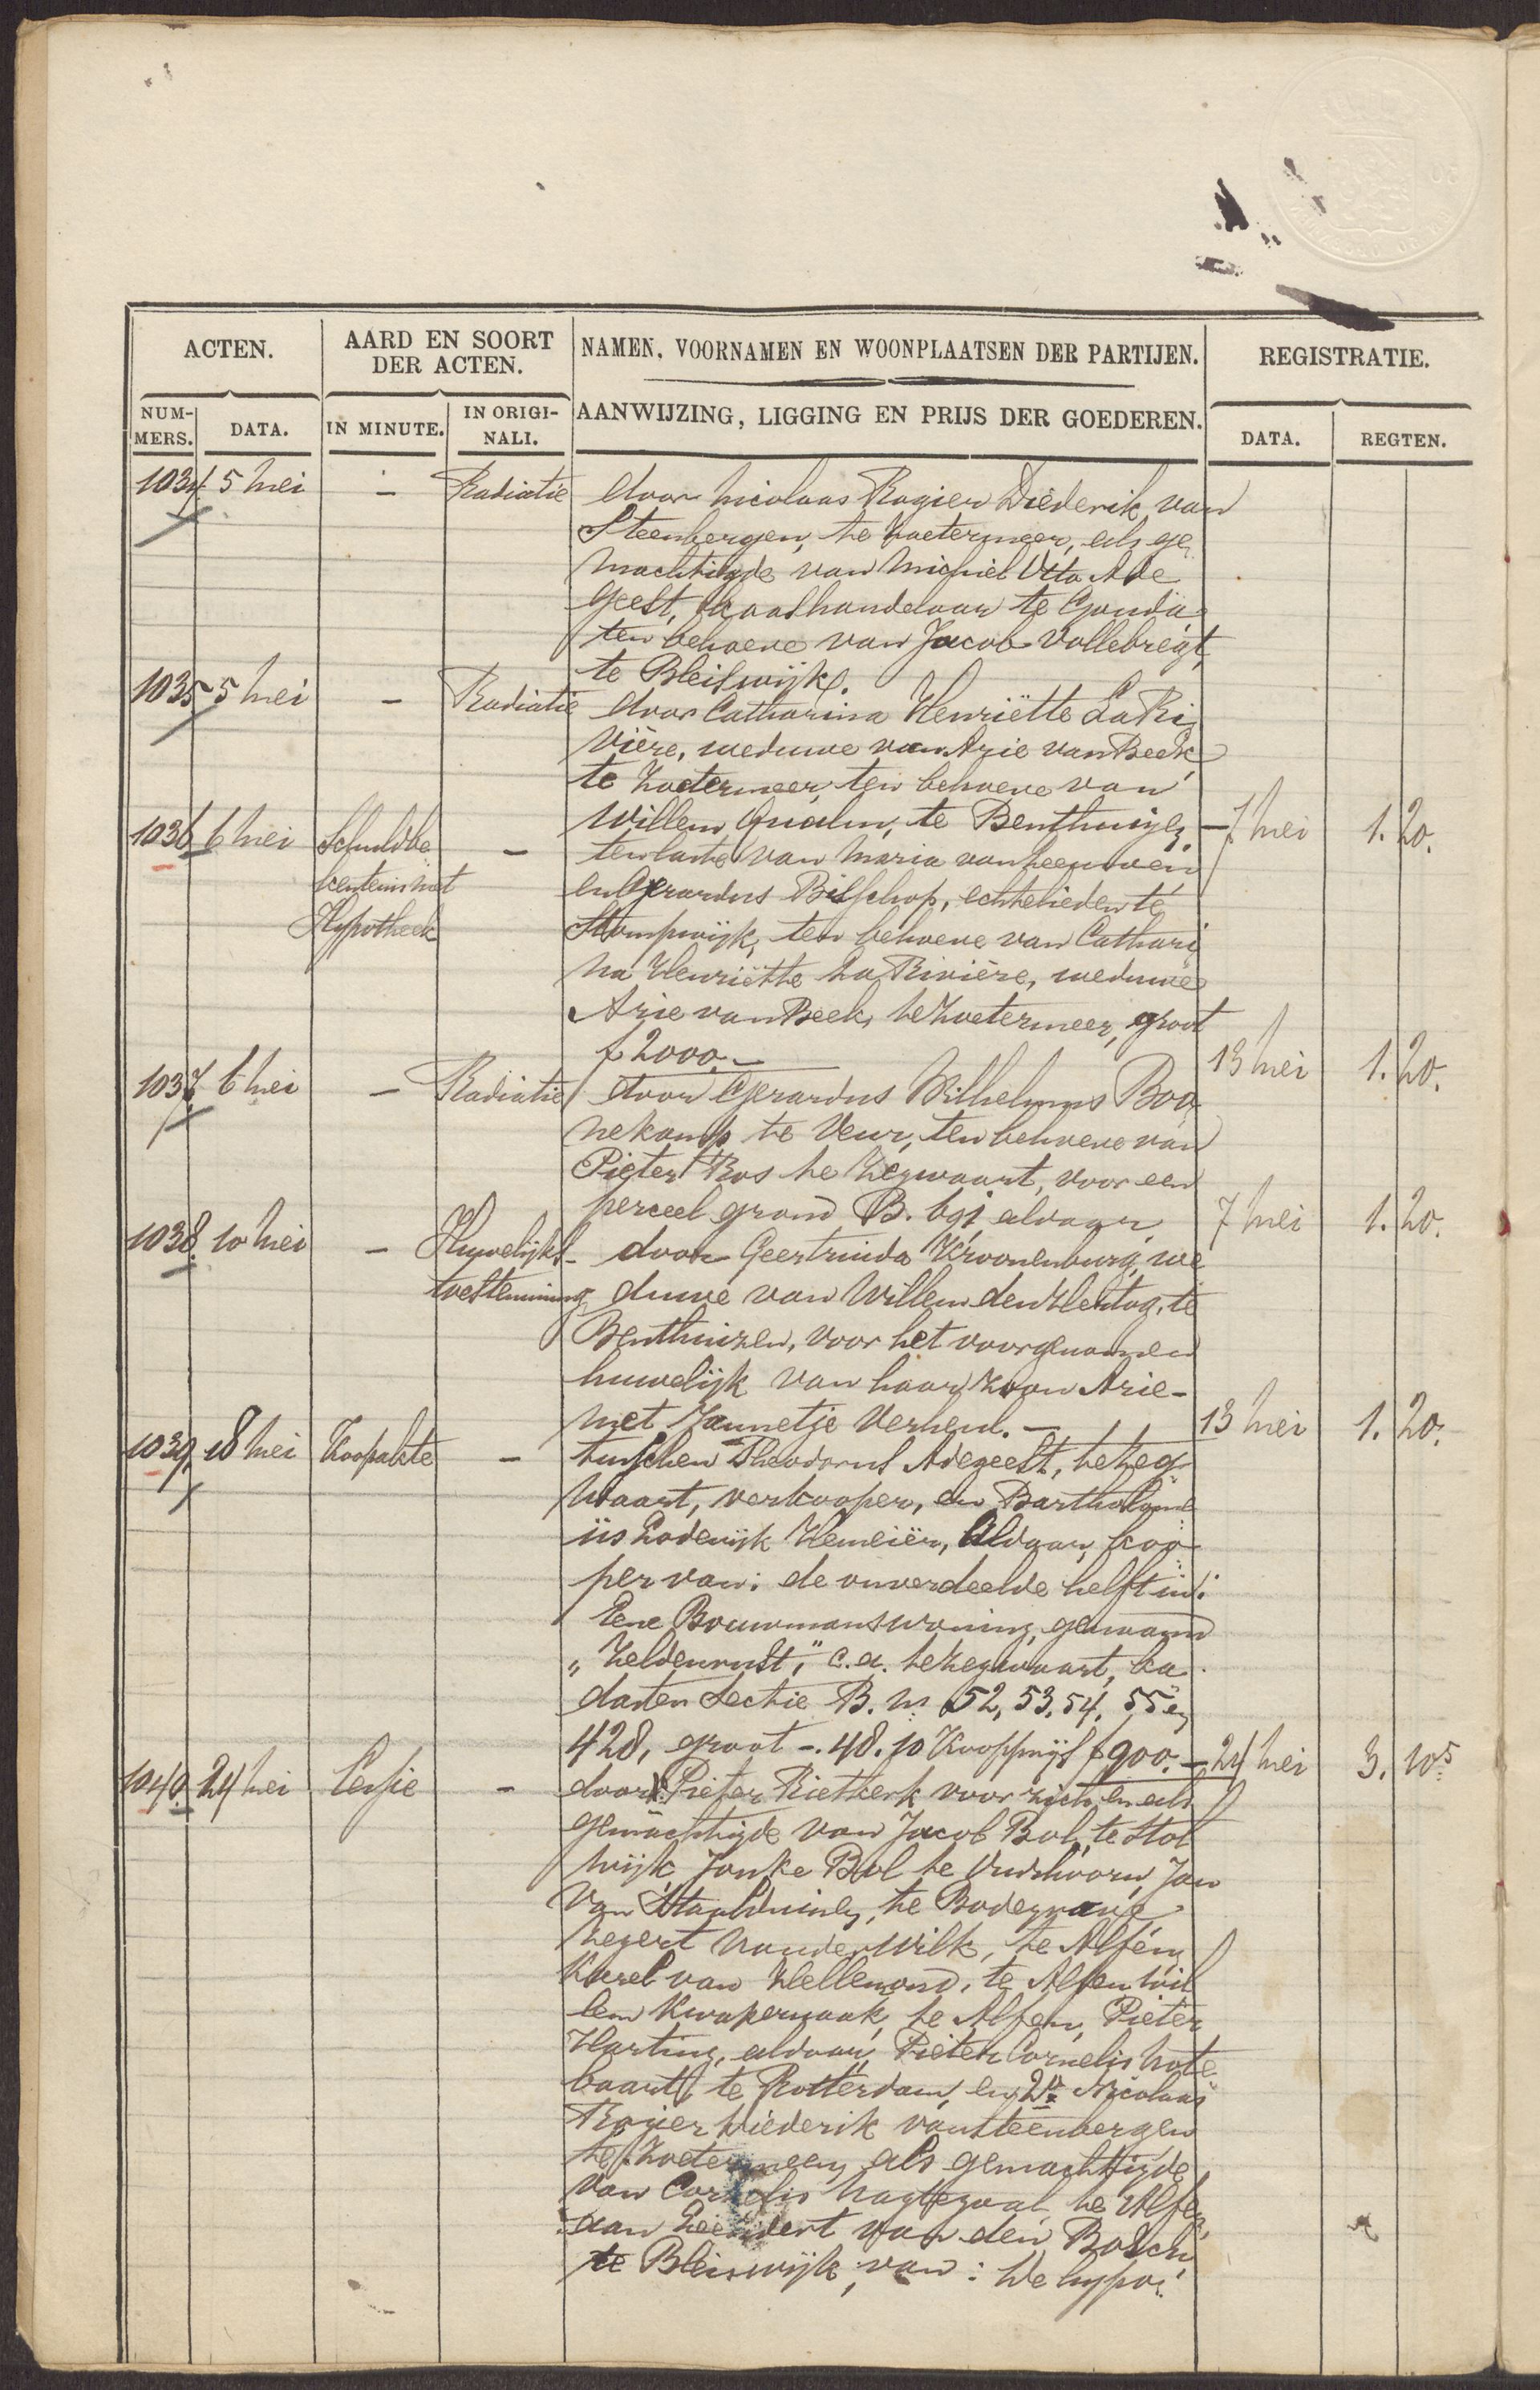 ACTEN.
AARD EN SOORT
DER ACTEN.
NAMEN, VOORNAMEN EN WOONPLAATSEN DER PARTIJEN.
AANWIJZING, LIGGING EN PRIJS DER GOEDEREN.
REGISTRATIE.
NUM-
MERS.
DATA.
IN MINUTE.
IN ORIGI-
NALI.
DATA.
REGTEN.
1034 5 Mei - Radiatie door Nicolaas Rogier Diederik van
Steenbergen, te Zoetermeer, als ge
machtigde van Michiel Otto Ade
geest, kaashandelaar te Gouda,
ten behoeve van Jacob Vollebregt,
te Bleiswijk.
1035 5 Mei - Radiatie door Catharina Henriëtte La Ri
vière, weduwe van Arie van Beek,
te Zoetermeer, ten behoeve van
Willem Qualm, te Benthuizen - 7 Mei 1.20.
1036 6 Mei Schuldbe - ten laste van Maria van Leeuwen
kentenis met en Gerardus Bisschop, echtelieden te
Hypotheek Stompwijk, ten behoeve van Cathari
na Henriëtte La Rivière, weduwe
Arie van Beek, te Zoetermeer, groot
f 2000.- 13 Mei 1.20.
1037 6 Mei - Radiatie door Gerardus Wilhelmus Boo
nekamp te Veur, ten behoeve van
Pieter Bos te Zegwaart, voor een
perceel grond B. 691 aldaar, 7 Mei 1.20.
1038. 10 Mei - Huwelijks- door Geertruida Kroonenburg, we
toestemming duwe van Willem den Hertog, te
Benthuizen, voor het voorgenomen
huwelijk van haar zoon Arie-
met Jannetje Verheul.- 13 Mei 1.20.
1039. 18 Mei Koopakte - tusschen Theodorus Adegeest, te Zeg
waart, verkooper, en Bartholome
üs Lodewijk Hemeiër, aldaar, koo
per van: de onverdeelde helft in:
Eene Bouwmanswoning, genaamd
"Zeldenrust," c.a. te Zegwaart, ka
daster Sectie B. Nr 52, 53, 54, 55 en
428, groot -.48.10 Koopprijs f 900.- 24 Mei 3.10⁵
1040. 24 Mei Cessie - door 1. Pieter Rietkerk voor zich en als
gemachtigde van Jacob Bol, te Stol
wijk, Janke Bol te Oudshoorn, Jan
van Staalduinen, te Bodegrave
Zegert van der Wilk, te Alfen,
Karel van Hellemond, te Alfen, Wil
lem Kwakernaak, te Alfen, Pieter
Harting, aldaar, Pieter Cornelis Note
baart, te Rotterdam, en 2º Nicolaas
Rogier Diederik van Steenbergen
te Zoetermeer, als gemachtigde
van Cornelis Nagtegaal te Alfen,
aan Leendert van den Bosch
te Bleiswijk, van: De hypo